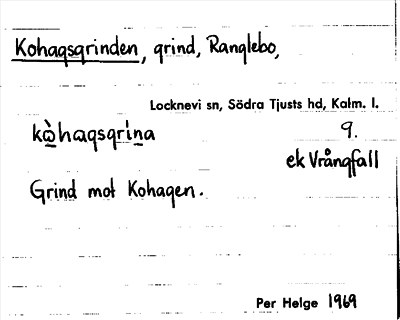 Kohagsgrinden, grind, Ranglebo,
Locknevi sn, Södra Tjusts hd, Kalm. l.
kὼhagsgrina 9.
ek Vrångfall
Grind mot Kohagen.
Per Helge 1969